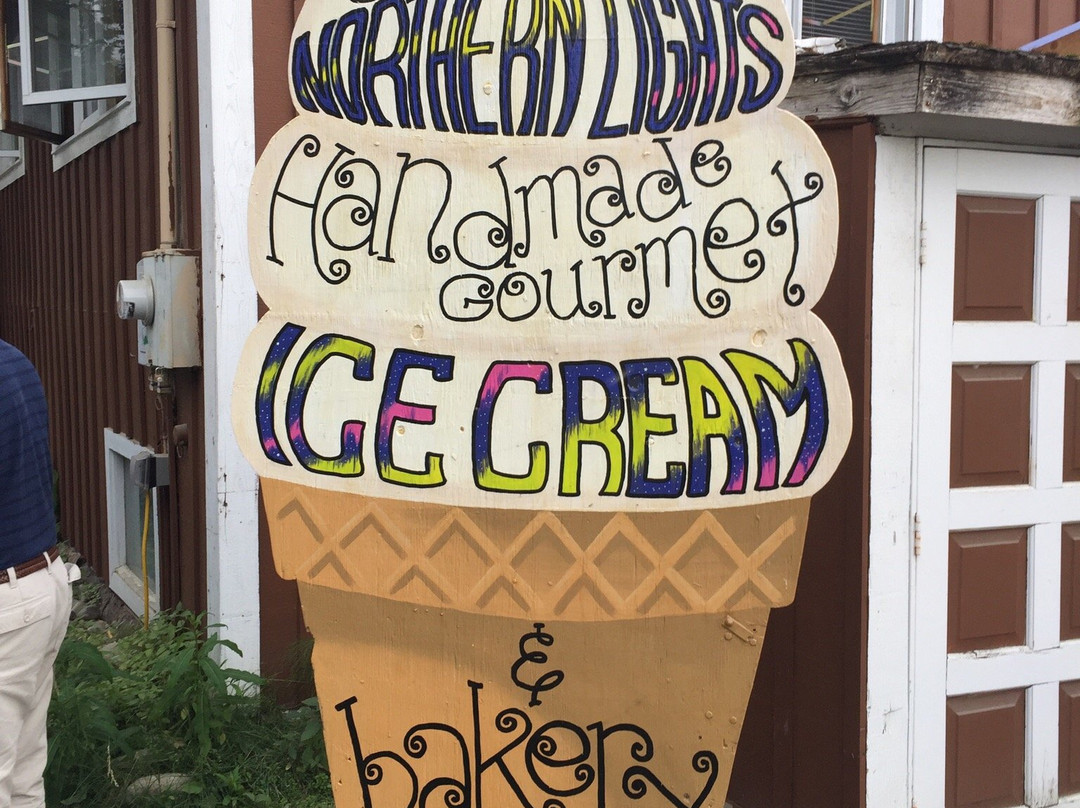 NORTHERN LIGHTS
Handmade
Gourmet
ICE CREAM
&
bakery